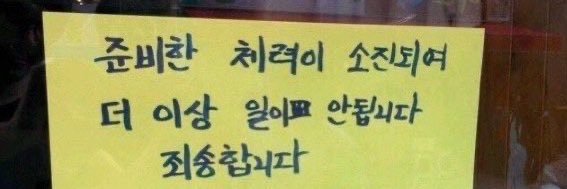 준비한 체력이 소진되여
더 이상 일이 안됩니다
죄송합니다